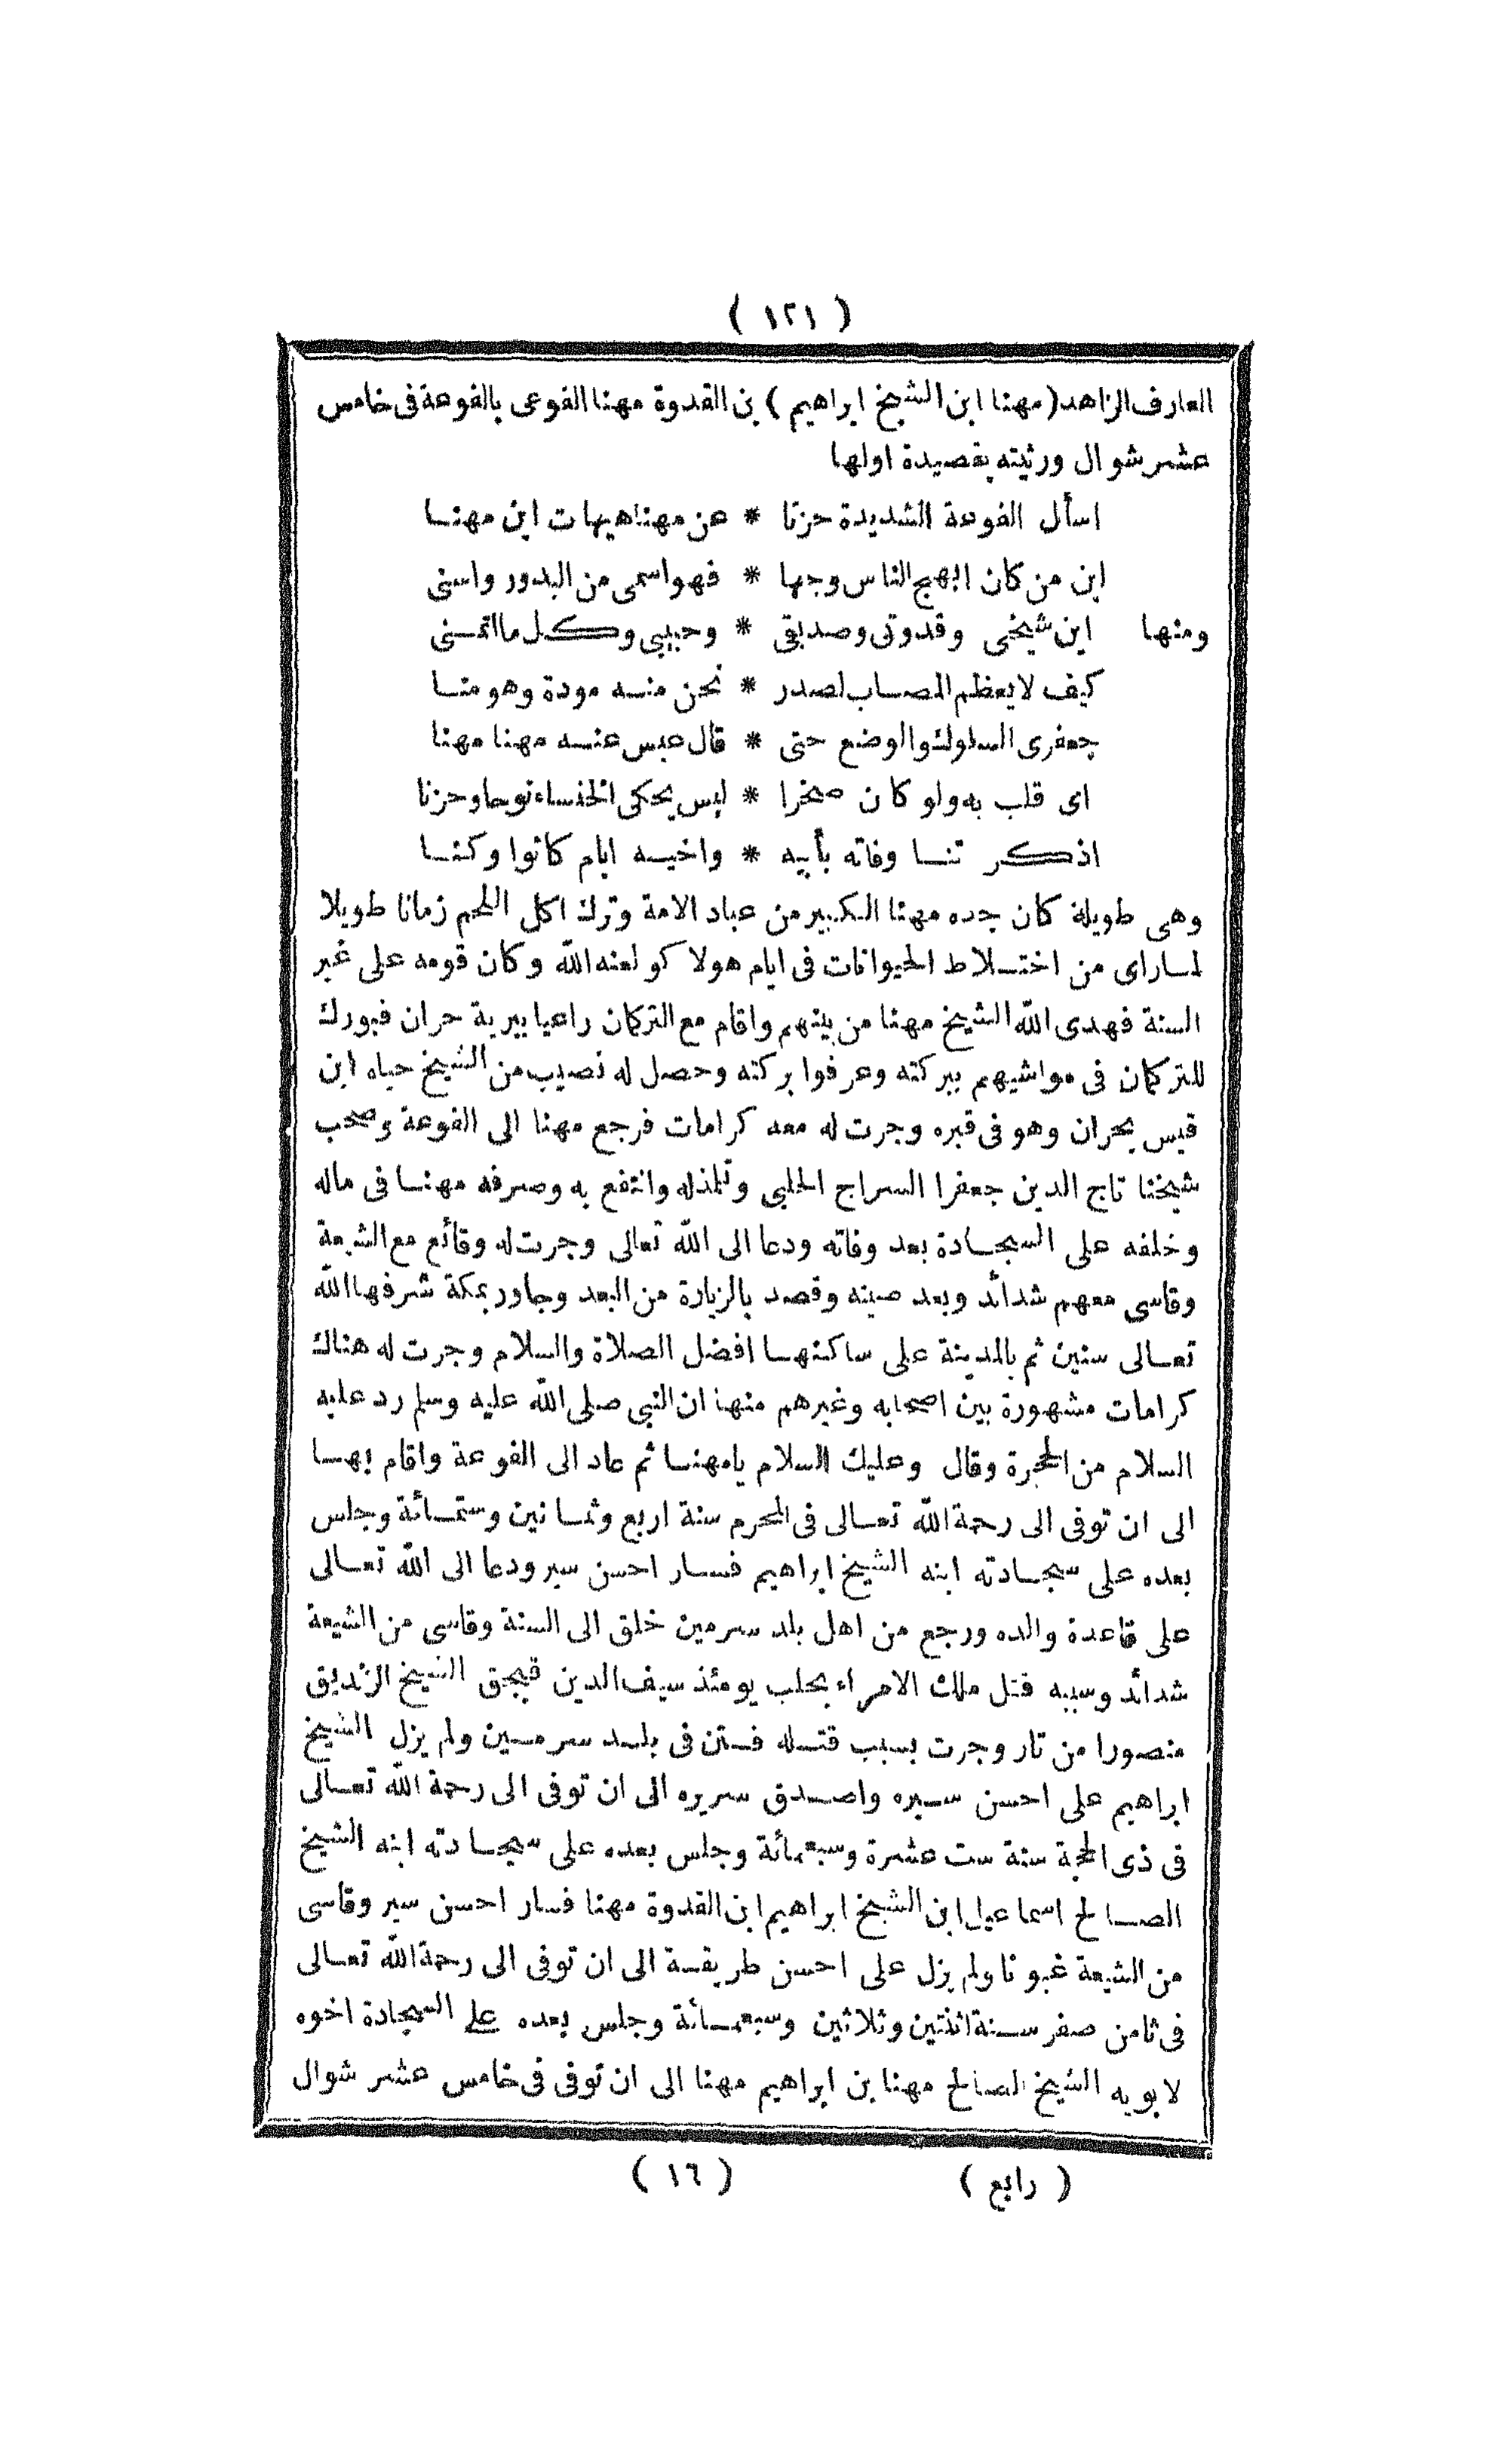 ( ١٢١ )
العارف الزاهد (مهنا ابن الشيخ ابراهيم ) بن القدوة مهنا الفوعى بالفوعة فى خامس
عشر شوال ورثيته بقصيدة اولها
اسأل الفوعة الشديدة حزنا * عن مهنا هيهات اين مهنــا
اين من كان ابهج الناس وجها * فهو اسمى من البدور واسنى
ومنها اين شيخى وقدوتى وصديقى * وحبيبى وكـــل ما اتمــنى
كيف لا يعظم المصــاب لصدر * نحن منــه مودة وهو منــا
جعفرى السلوك والوضع حتى * قال عبس عنــه مهنا مهنا
اى قلب به ولو كان صخرا * ليس يحكى الخنساء نوحا وحزنا
اذكـــر تنــا وفاته بأبيه * واخيــه ايام كانوا وكنــا
وهى طويلة كان جده مهنا الكبير من عباد الامة وترك اكل اللحم زمانا طويلا
لمــا راى من اختــلاط الحيوانات فى ايام هولا كو لعنه الله وكان قومه على غير
السنة فهدى الله الشيخ مهنا من بينهم واقام مع التركمان راعيا ببرية حران فبورك
للتركمان فى مواشيهم ببركته وعرفوا بركته وحصل له نصيب من الشيخ حياه ابن
قيس بحران وهو فى قبره وجرت له معه كرامات فرجع مهنا الى الفوعة وصحب
شيخنا تاج الدين جعفرا السراج الحلبى وتلمذ له وانتفع به وصرفه مهنــا فى ماله
وخلفه على السجــادة بعد وفاته ودعا الى الله تعالى وجرت له وقائع مع الشيعة
وقاسى معهم شدائد وبعد صيته وقصد بالزيارة من البعد وجاور بمكة شرفها الله
تعــالى سنين ثم بالمدينة على ساكنهــا افضل الصلاة والسلام وجرت له هناك
كرامات مشهورة بين اصحابه وغيرهم منها ان النبى صلى الله عليه وسلم رد عليه
السلام من الحجرة وقال وعليك السلام يا مهنــا ثم عاد الى الفوعة واقام بهــا
الى ان توفى الى رحمة الله تعــالى فى المحرم سنة اربع وثمــانين وستمــائة وجلس
بعده على سجــادته ابنه الشيخ ابراهيم فســار احسن سير ودعا الى الله تعــالى
على قاعدة والده ورجع من اهل بلد سرمين خلق الى السنة وقاسى من الشيعة
شدائد وسببه قتل ملك الامراء بحلب يومئذ سيف الدين قبجق الشيخ الزنديق
منصورا من تار وجرت بسبب قتــله فــتن فى بلــد سرمــين ولم يزل الشيخ
ابراهيم على احسن ســيره واصــدق سريره الى ان توفى الى رحمة الله تعــالى
فى ذى الحجة سنة ست عشرة وسبعمائة وجلس بعده على سجــادته ابنه الشيخ
الصــالح اسماعيل ابن الشيخ ابراهيم ابن القدوة مهنا فسار احسن سير وقاسى
من الشيعة غبونا ولم يزل على احسن طريقــة الى ان توفى الى رحمة الله تعــالى
فى ثامن صفر ســنة اثنتين وثلاثين وسبعمــائة وجلس بعده على السجادة اخوه
لابويه الشيخ الصالح مهنا بن ابراهيم مهنا الى ان توفى فى خامس عشر شوال
( رابع ) ( ١٦ )